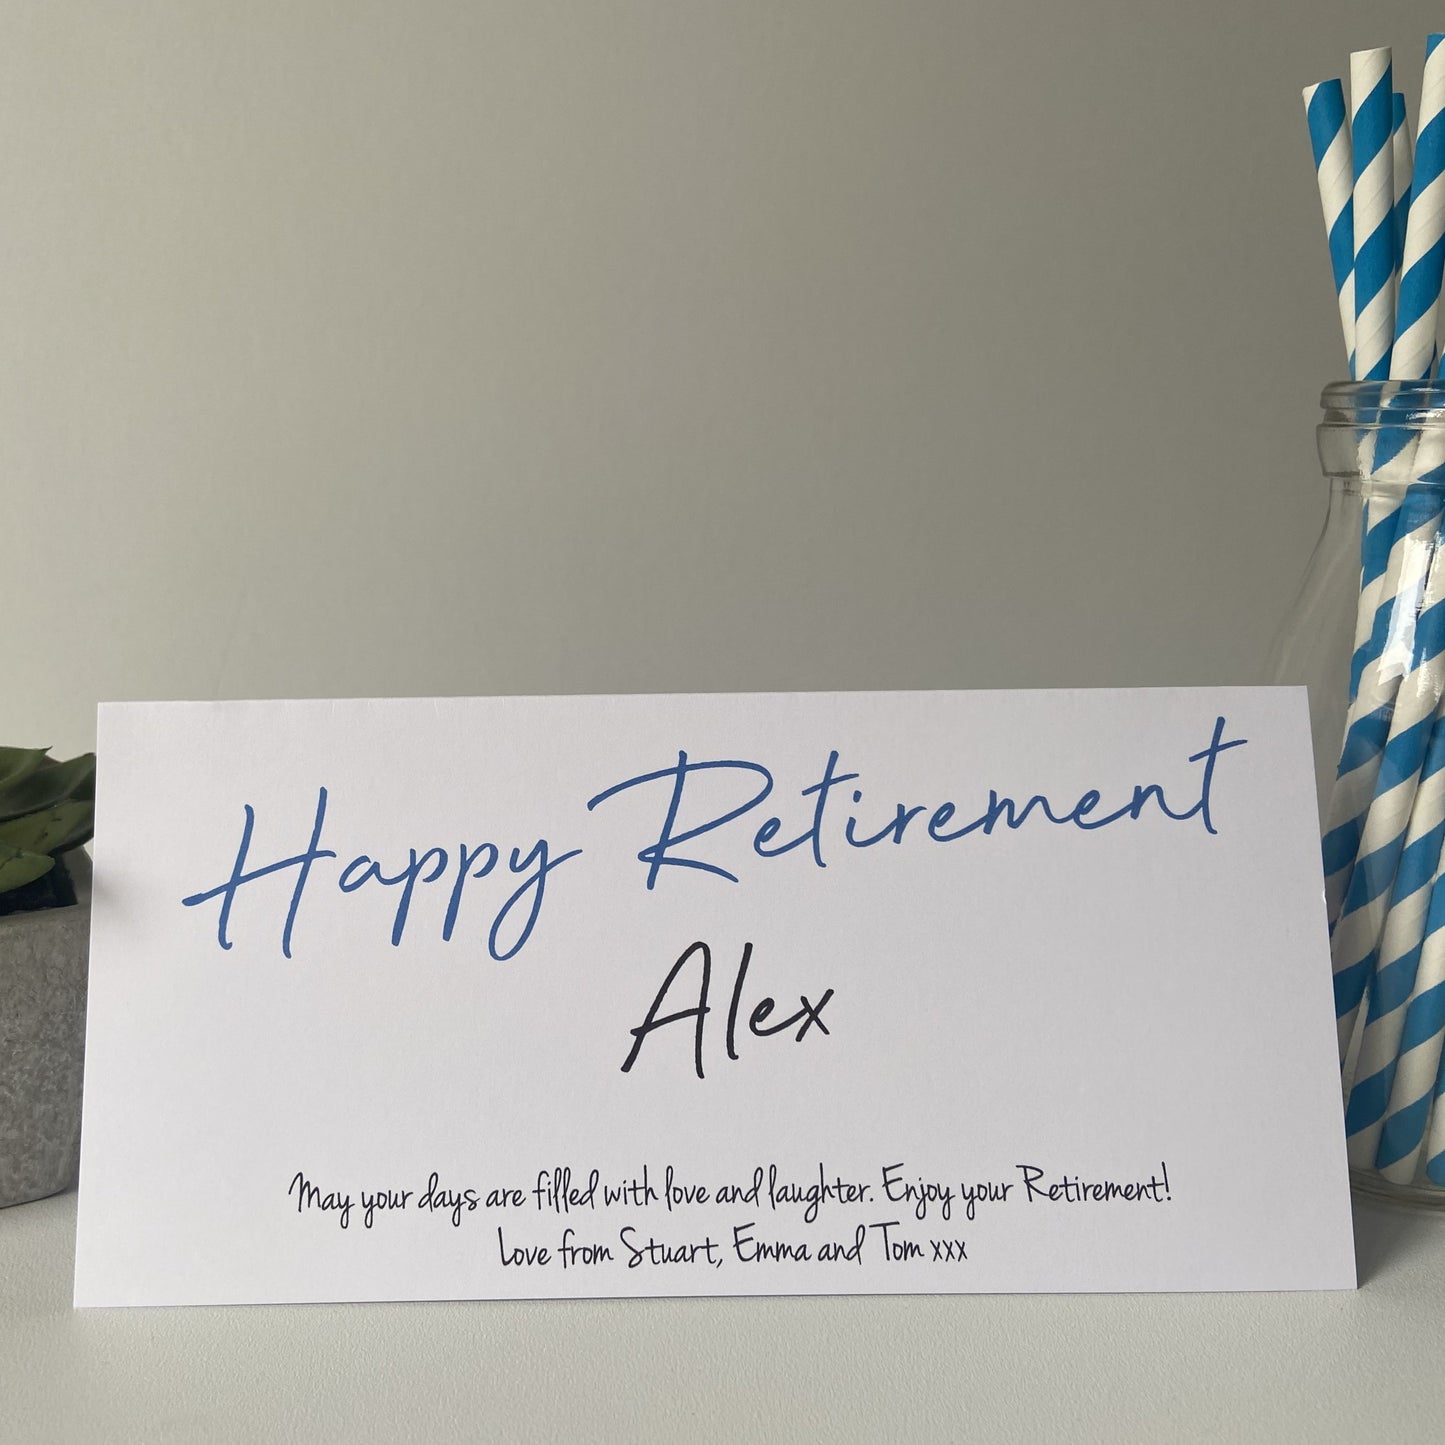 Happy Retirement
Alex
May your days are filled with love and laughter. Enjoy your Retirement!
Love from Stuart, Emma and Tom xxx